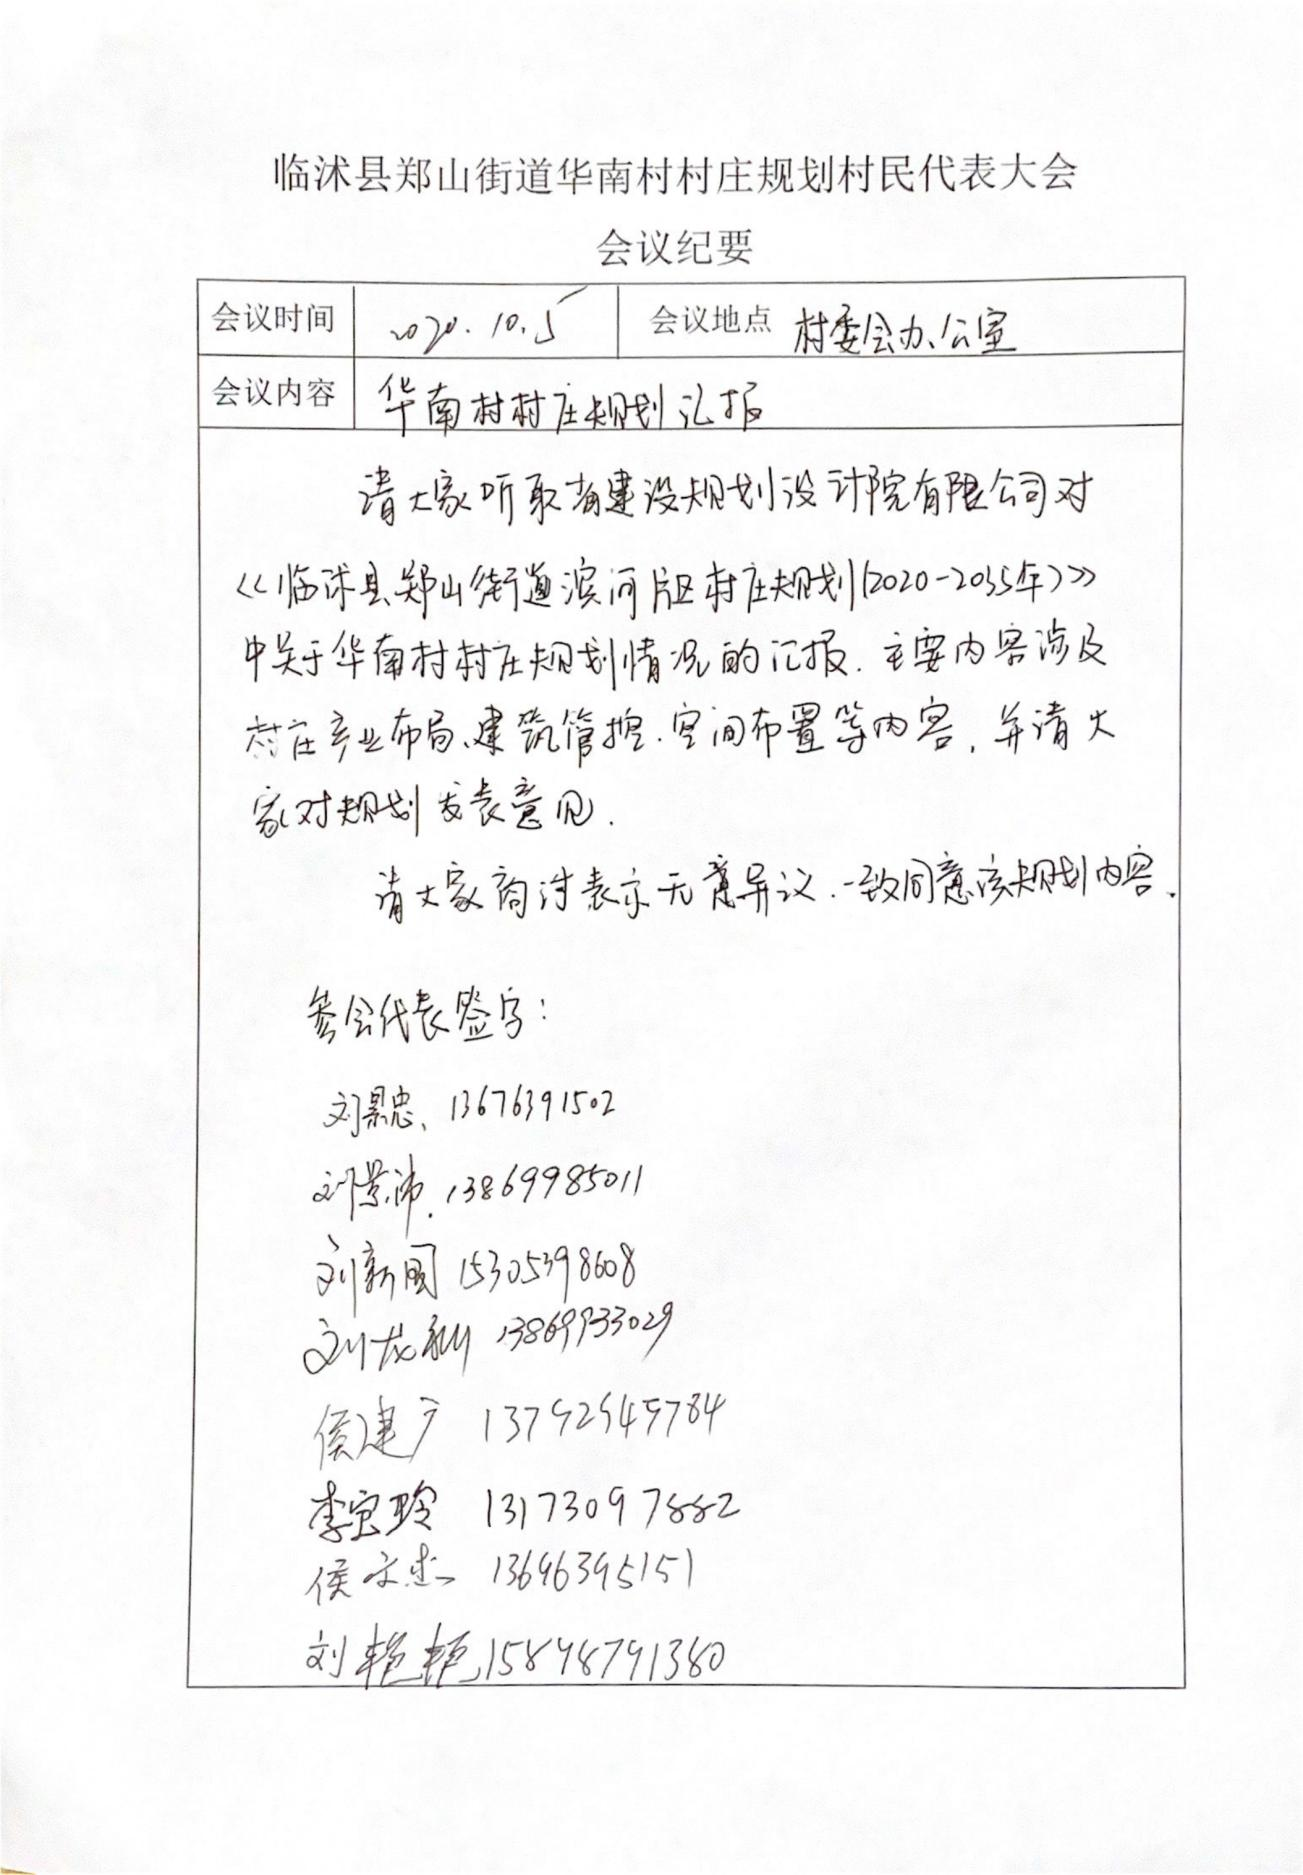 临沭县郑山街道华南村村庄规划村民代表大会
会议纪要
会议时间 2020.10.5 会议地点 村委会办公室
会议内容 华南村村庄规划汇报
请大家听取省建设规划设计院有限公司对
《临沭县郑山街道滨河片区村庄规划(2020-2035年)》
中关于华南村村庄规划情况的汇报.主要内容涉及
村庄产业布局、建筑管控、空间布置等内容,并请大
家对规划发表意见.
请大家商讨表示无意异议.一致同意该规划内容.
参会代表签字:
刘景忠、13676391502
刘景沛.13869985011
刘新国 15305398608
刘 13869933029
侯建广 13792949784
李宝玲 13173097882
侯文杰 13696395151
刘艳艳 15898791380